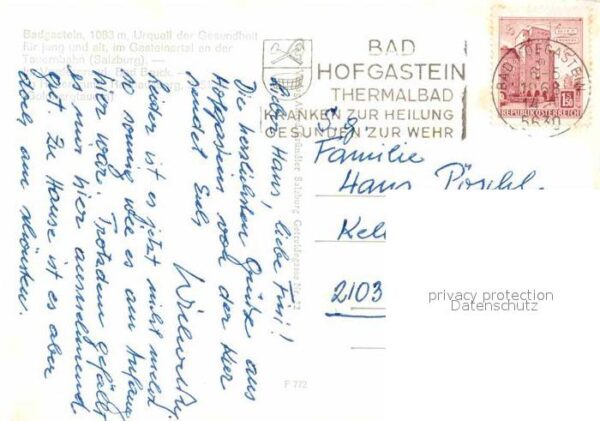 Badgastein, 1083 m, Urquell der Gesundheit
für jung und alt, im Gasteinertal an der
Tauernbahn (Salzburg). —
BAD
HOFGASTEIN
THERMALBAD
KRANKEN ZUR HEILUNG
GESUNDEN ZUR WEHR
BAD HOFGASTEIN
1968
5630
1.50
REPUBLIK ÖSTERREICH
Lieber Hans, liebe
Die herzlichsten Grüße aus
Hofgastein von der Hier
sendet Euch
Leider ist es jetzt nicht mehr
so sonnig wie es am Anfang
hier war. Trotzdem gefällt
es mir hier ausnehmend
gut. Zu Hause ist es aber
doch am schönsten.
Salzburg Getreidegasse Nr. 22
F 772
Familie
Hans Pöschl
Kel
2103
privacy protection
Datenschutz